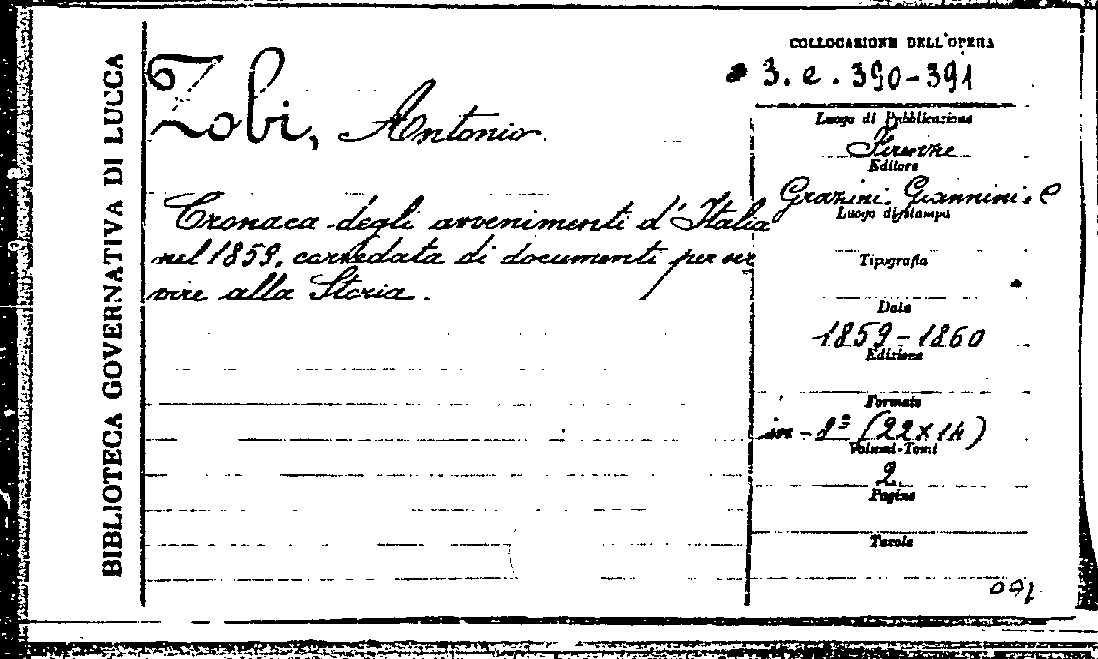 BIBLIOTECA GOVERNATIVA DI LUCCA
Zobi, Antonio
Cronaca degli avvenimenti d'Italia
nel 1859, corredata di documenti per ser
vire alla Storia.
COLLOCAZIONE DELL'OPERA
3. e. 390-391
Luogo di Pubblicazione
Firenze
Editore
Grazini. Giannini. C
Luogo di stampa
Tipografia
Data
1859-1860
Edizione
Formato
in-8º (22x14)
Volumi-Tomi
2.
Pagine
Tavole